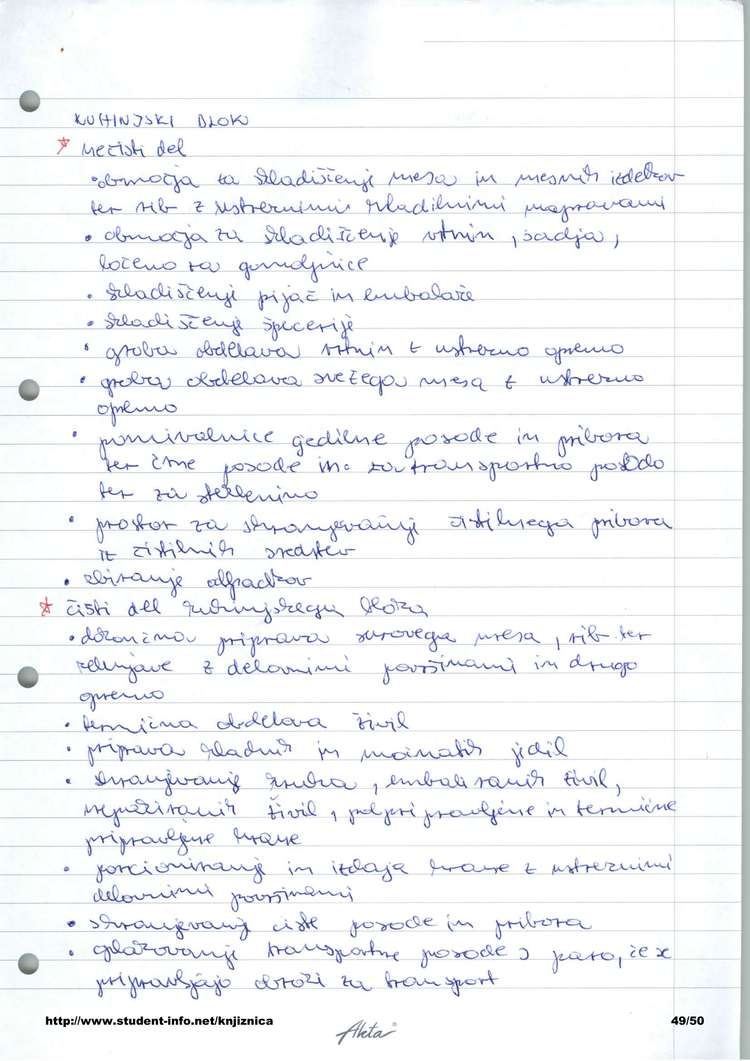 KUHINJSKI BLOK
* nečisti del
• območja za skladiščenje mesa in mesnih izdelkov
ter rib z ustreznimi hladilnimi napravami
• območja za skladiščenje vrtnin, sadja,
ločeno za gomoljnice
• skladiščenje pijač in embalaže
• skladiščenje špecerije
• groba obdelava vrtnin z ustrezno opremo
• groba obdelava svežega mesa z ustrezno
opremo
• pomivalnice jedilne posode in pribora
ter črne posode in za transportno posodo
ter za steklenino
• prostor za shranjevanje čistilnega pribora
iz čistilnih sredstev
• zbiranje odpadkov
* čisti del kuhinjskega bloka
• dokončna priprava surovega mesa, rib ter
zelenjave z delovnimi površinami in drugo
opremo
• termična obdelava živil
• priprava hladnih in močnatih jedil
• shranjevanje kruha, embaliranih živil,
živil, polpripravljene in termične
pripravljene hrane
• porcioniranje in izdaja hrane z ustreznimi
delovnimi površinami
• shranjevanje čiste posode in pribora
• transportne posode s paro, če se
pripravljajo obroki za transport
http://www.student-info.net/knjiznica
49/50
Akta